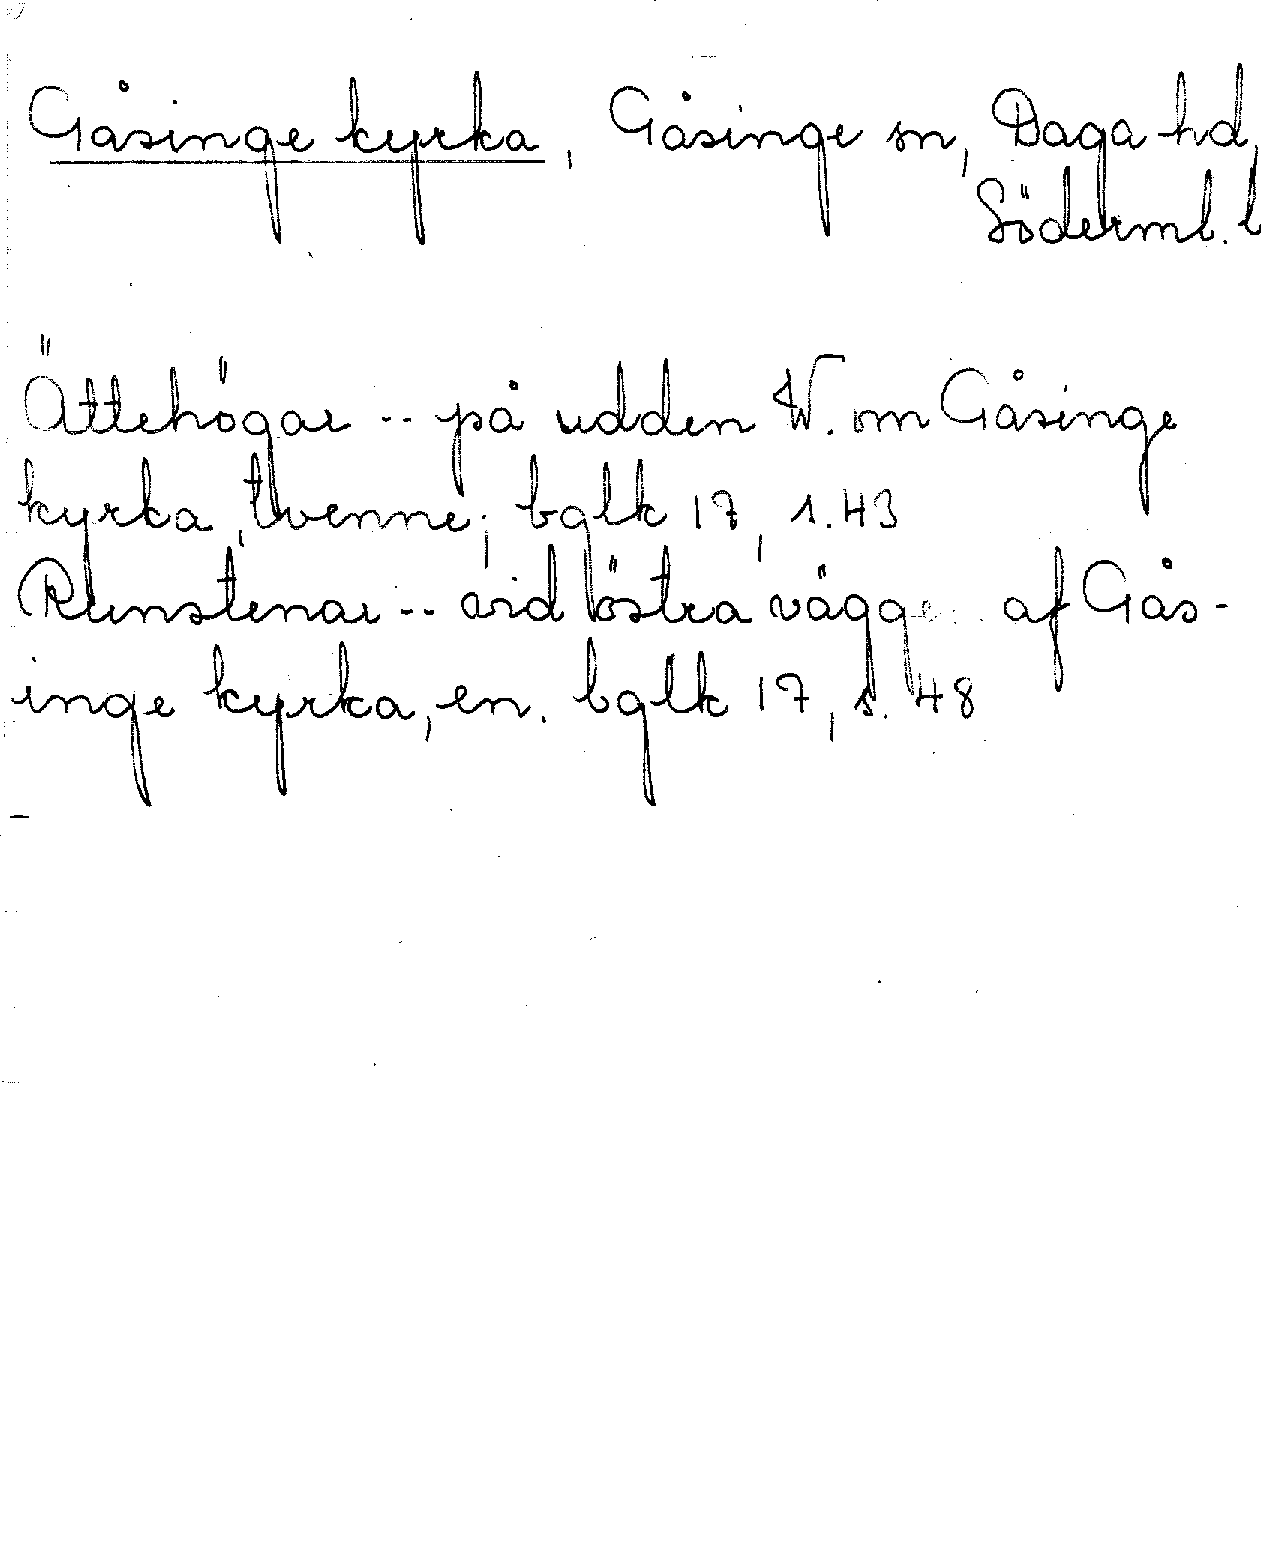 Gåsinge kyrka, Gåsinge sn, Daga hd,
Söderml. l
Ättehögar -- på udden W. om Gåsinge
kyrka, tvenne; bglk 17, s. 43
Runstenar -- vid östra väggen af Gås-
inge kyrka, en. bglk 17, s. 48